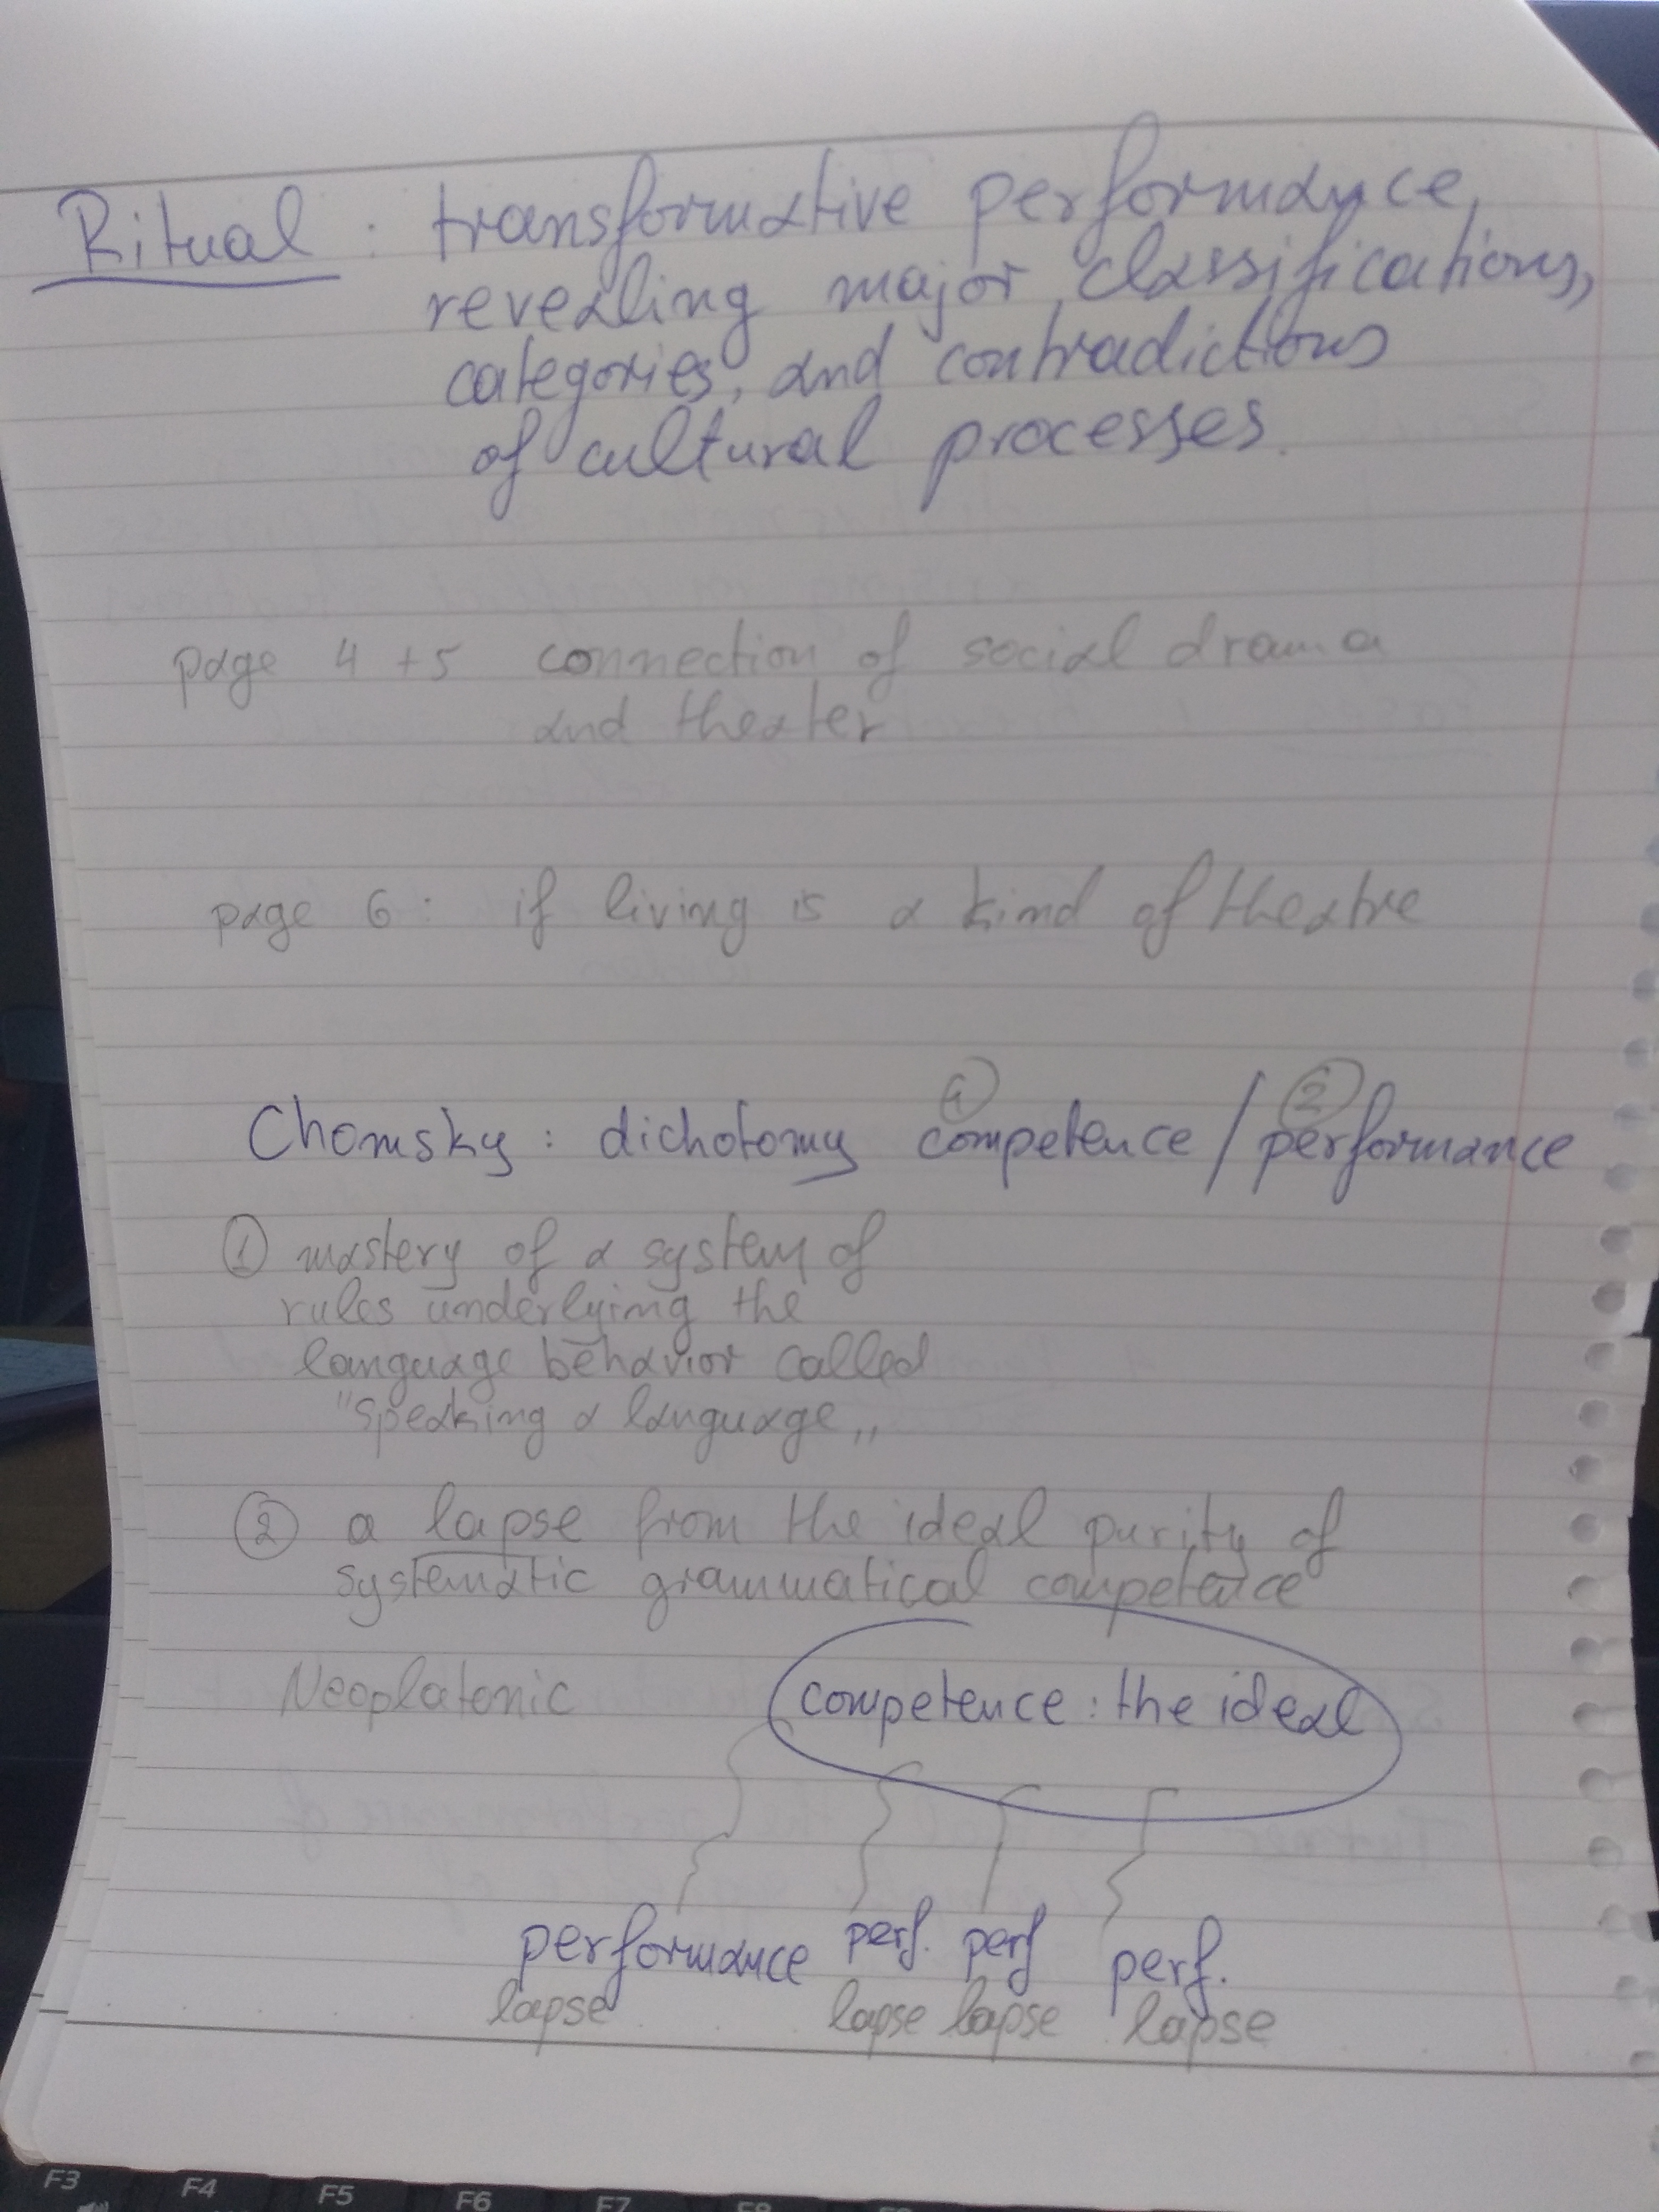 Ritual : transformative performance,
revealing major classifications,
categories, and contradictions
of cultural processes.
page 4 + 5 connection of social drama
and theater
page 6 : if living is a kind of theatre
1 2
Chomsky : dichotomy competence / performance
1 mastery of a system of
rules underlying the
language behavior called
"speaking a language„
2 a lapse from the ideal purity of
systematic grammatical competence
Neoplatonic competence : the ideal
performance perf. perf perf.
lapse lapse lapse lapse
F3 F4 F5 F6 F7 F8